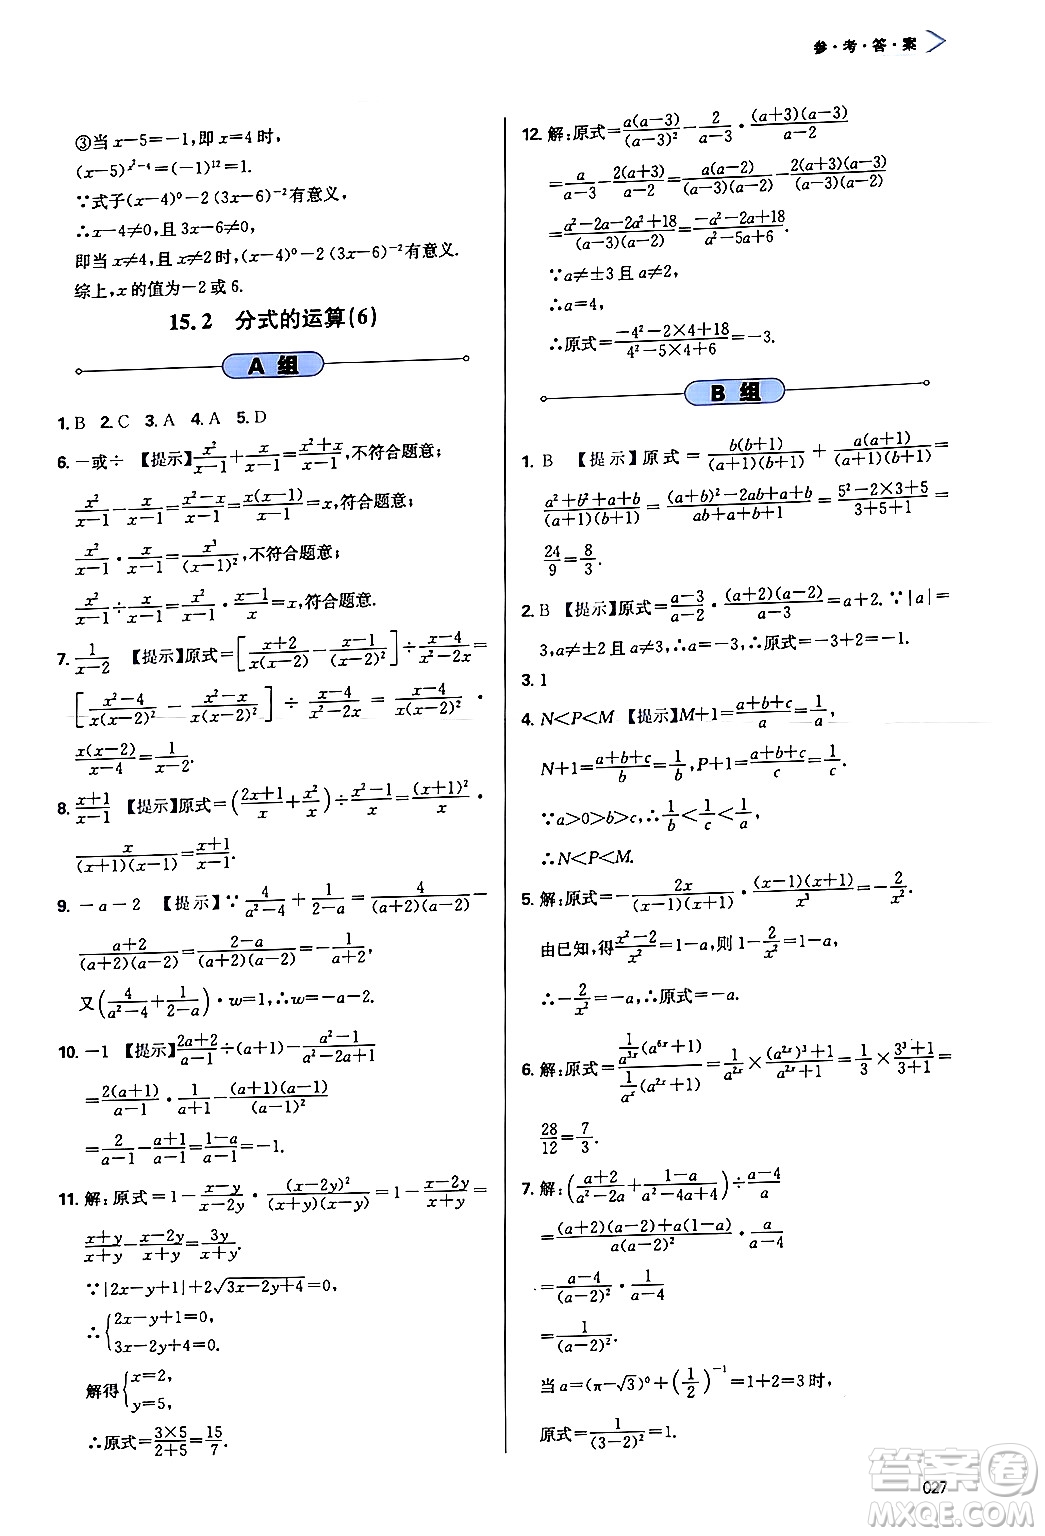 参·考·答·案
③当 x-5=-1,即 x=4 时,
(x-5)^{x²-4}=(-1)^{12}=1.
∵式子(x-4)^0-2(3x-6)^{-2}有意义,
∴x-4≠0,且 3x-6≠0,
即当 x≠4,且 x≠2 时,(x-4)^0-2(3x-6)^{-2}有意义.
综上,x 的值为-2 或 6.
15.2 分式的运算(6)
A 组
1. B 2. C 3. A 4. A 5. D
6. -或÷ 【提示】x²/(x-1)+x/(x-1)=(x²+x)/(x-1),不符合题意;
x²/(x-1)-x/(x-1)=(x²-x)/(x-1)=x(x-1)/(x-1)=x,符合题意;
x²/(x-1)·x/(x-1)=x³/(x-1)²,不符合题意;
x²/(x-1)÷x/(x-1)=x²/(x-1)·(x-1)/x=x,符合题意.
7. 1/(x-2) 【提示】原式=[(x+2)/(x(x-2))-(x-1)/(x-2)²]÷(x-4)/(x²-2x)=
[(x²-4)/(x(x-2)²)-(x²-x)/(x(x-2)²)]÷(x-4)/(x²-2x)=(x-4)/(x(x-2)²)·
x(x-2)/(x-4)=1/(x-2).
8. (x+1)/(x-1) 【提示】原式=((2x+1)/x+x²/x)÷(x²-1)/x=(x+1)²/x·
x/((x+1)(x-1))=(x+1)/(x-1).
9. -a-2 【提示】∵4/(a²-4)+1/(2-a)=4/((a+2)(a-2))-
(a+2)/((a+2)(a-2))=(2-a)/((a+2)(a-2))=-1/(a+2),
又(4/(a²-4)+1/(2-a))·w=1,∴w=-a-2.
10. -1 【提示】(2a+2)/(a-1)÷(a+1)-(a²-1)/(a²-2a+1)
=2(a+1)/(a-1)·1/(a+1)-(a+1)(a-1)/(a-1)²
=2/(a-1)-(a+1)/(a-1)=(1-a)/(a-1)=-1.
11. 解:原式=1-(x-y)/(x-2y)·(x-2y)²/((x+y)(x-y))=1-(x-2y)/(x+y)=
(x+y)/(x+y)-(x-2y)/(x+y)=3y/(x+y).
∵|2x-y+1|+2√(3x-2y+4)=0,
∴{2x-y+1=0,
3x-2y+4=0.
解得{x=2,
y=5,
∴原式=(3×5)/(2+5)=15/7.
12. 解:原式=a(a-3)/(a-3)²-2/(a-3)·(a+3)(a-3)/(a-2)
=a/(a-3)-2(a+3)/(a-2)=a(a-2)/((a-3)(a-2))-2(a+3)(a-3)/((a-2)(a-3))
=(a²-2a-2a²+18)/((a-3)(a-2))=(-a²-2a+18)/(a²-5a+6).
∵a≠±3 且 a≠2,
∴a=4,
∴原式=(-4²-2×4+18)/(4²-5×4+6)=-3.
B 组
1. B 【提示】原式=b(b+1)/((a+1)(b+1))+a(a+1)/((a+1)(b+1))=
(a²+b²+a+b)/((a+1)(b+1))=((a+b)²-2ab+a+b)/(ab+a+b+1)=(5²-2×3+5)/(3+5+1)=
24/9=8/3.
2. B 【提示】原式=(a-3)/(a-2)·(a+2)(a-2)/(a-3)=a+2.∵|a|=
3,a≠±2 且 a≠3,∴a=-3,∴原式=-3+2=-1.
3. 1
4. N<P<M 【提示】M+1=(a+b+c)/a=1/a,
N+1=(a+b+c)/b=1/b,P+1=(a+b+c)/c=1/c.
∵a>0>b>c,∴1/b<1/c<1/a,
∴N<P<M.
5. 解:原式=-2x/((x-1)(x+1))·(x-1)(x+1)/x³=-2/x².
由已知,得(x²-2)/x²=1-a,则 1-2/x²=1-a,
∴-2/x²=-a,∴原式=-a.
6. 解:原式=(1/a^{3x}(a^{6x}+1))/(1/a^x(a^{2x}+1))=1/a^{2x}×((a^{2x})³+1)/(a^{2x}+1)=1/3×(3³+1)/(3+1)=
28/12=7/3.
7. 解:((a+2)/(a²-2a)+(1-a)/(a²-4a+4))÷(a-4)/a
=((a+2)(a-2)+a(1-a))/(a(a-2)²)·a/(a-4)
=(a-4)/(a-2)²·1/(a-4)
=1/(a-2)².
当 a=(π-√3)^0+(1/2)^{-1}=1+2=3 时,
原式=1/(3-2)²=1.
答案圈
MXQE.COM
027